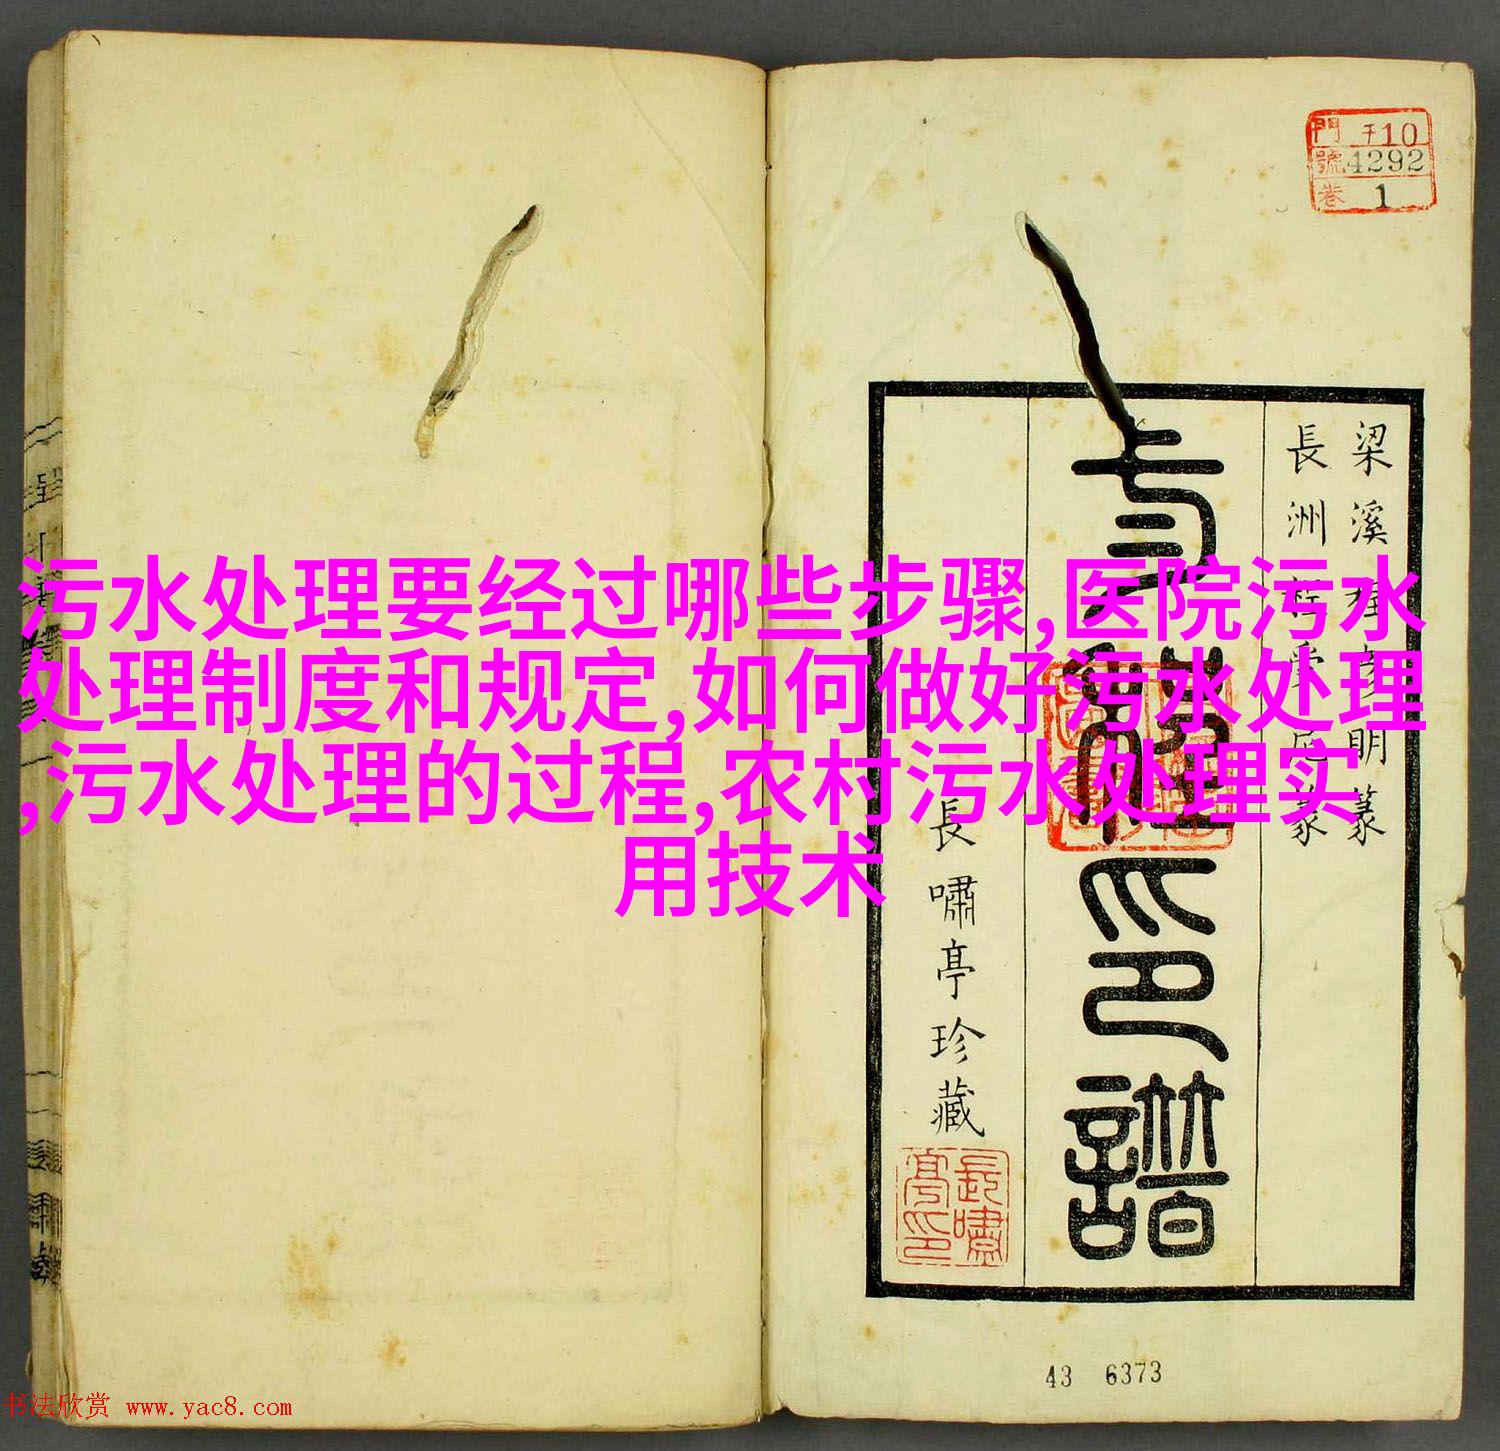 污水处理要经过哪些步骤,医院污水
处理制度和规定,如何做好污水处理
,污水处理的过程,农村污水处理实
用技术
門 干10
號 4292
卷 1
梁溪
明篆
長洲
篆
印譜
長嘯亭珍藏
長嘯亭印
43 6373
书法欣赏 www.yac8.com